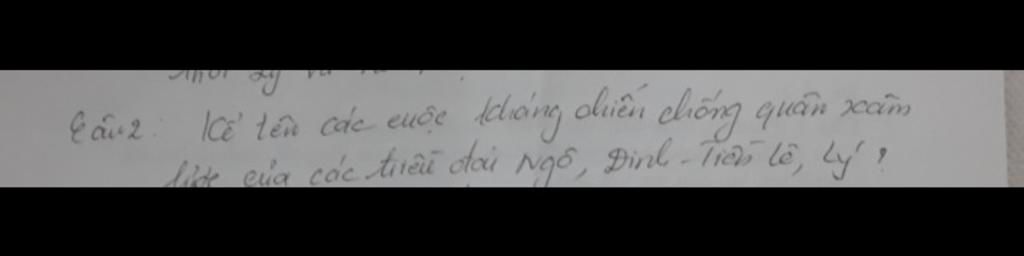 Câu 2: Kể tên các cuộc kháng chiến chống quân xâm
lược của các triều đại Ngô, Đinh - Tiền Lê, Lý ?